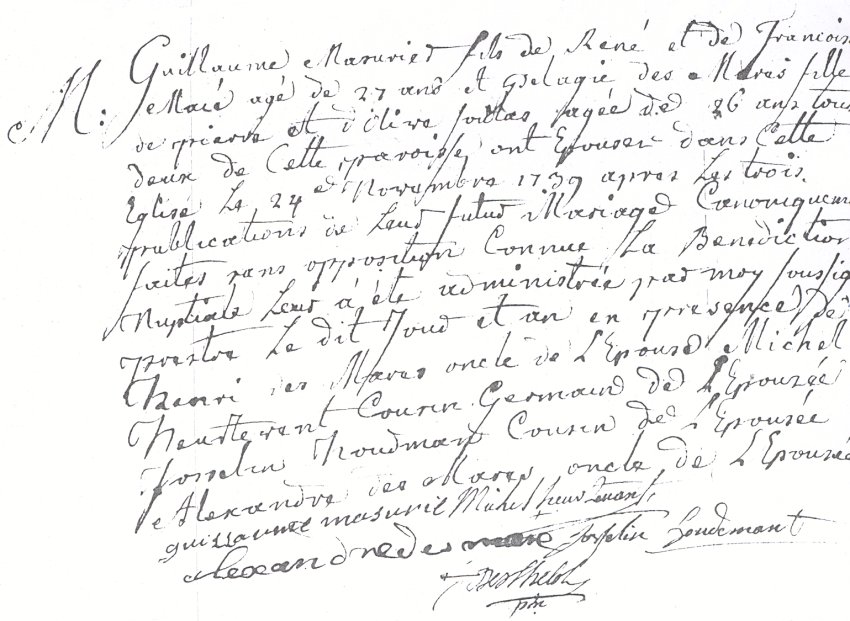 M: Guillaume Masuries fils de René et de Francois
Macé agé de 27 ans et Gelagie des Mares fille
de pierre et d'Olive agée de 26 ans tous
deux de Cette paroisse ont Epouser dans Cette
Eglise Le 24e Novembre 1739 apres Les trois
publications de Leur futur Mariage Canoniquem
faites sans opposition Connue La Benediction
Nuptiale Leur à été administrée par moy soussig
prestre Le dit Jour et an en presence de
henri des Mares oncle de L'Epouse Michel
heurtevent Cousin Germain de L'Epousée
Josselin houdman Cousin de L'Epousée
Alexandre des Mares oncle de L'Epousée
guillaume masurie Michel heurtevant
alexandre des mare Josselin houdemant
Berthelot
ptre